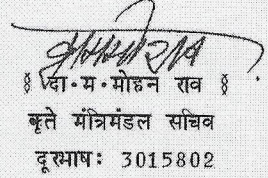 § दा·म·मोहन राव §
कृते मंत्रिमंडल सचिव
दूरभाषः 3015802